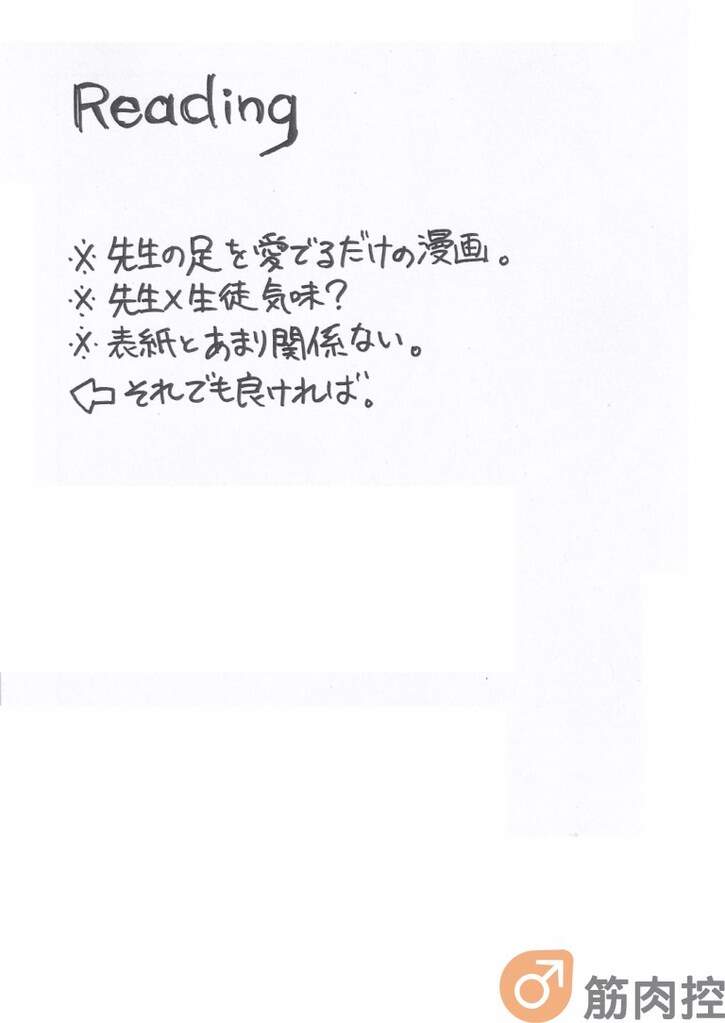 Reading
※先生の足を愛でるだけの漫画。
※先生×生徒気味?
※表紙とあまり関係ない。
⇦それでも良ければ。
筋肉控